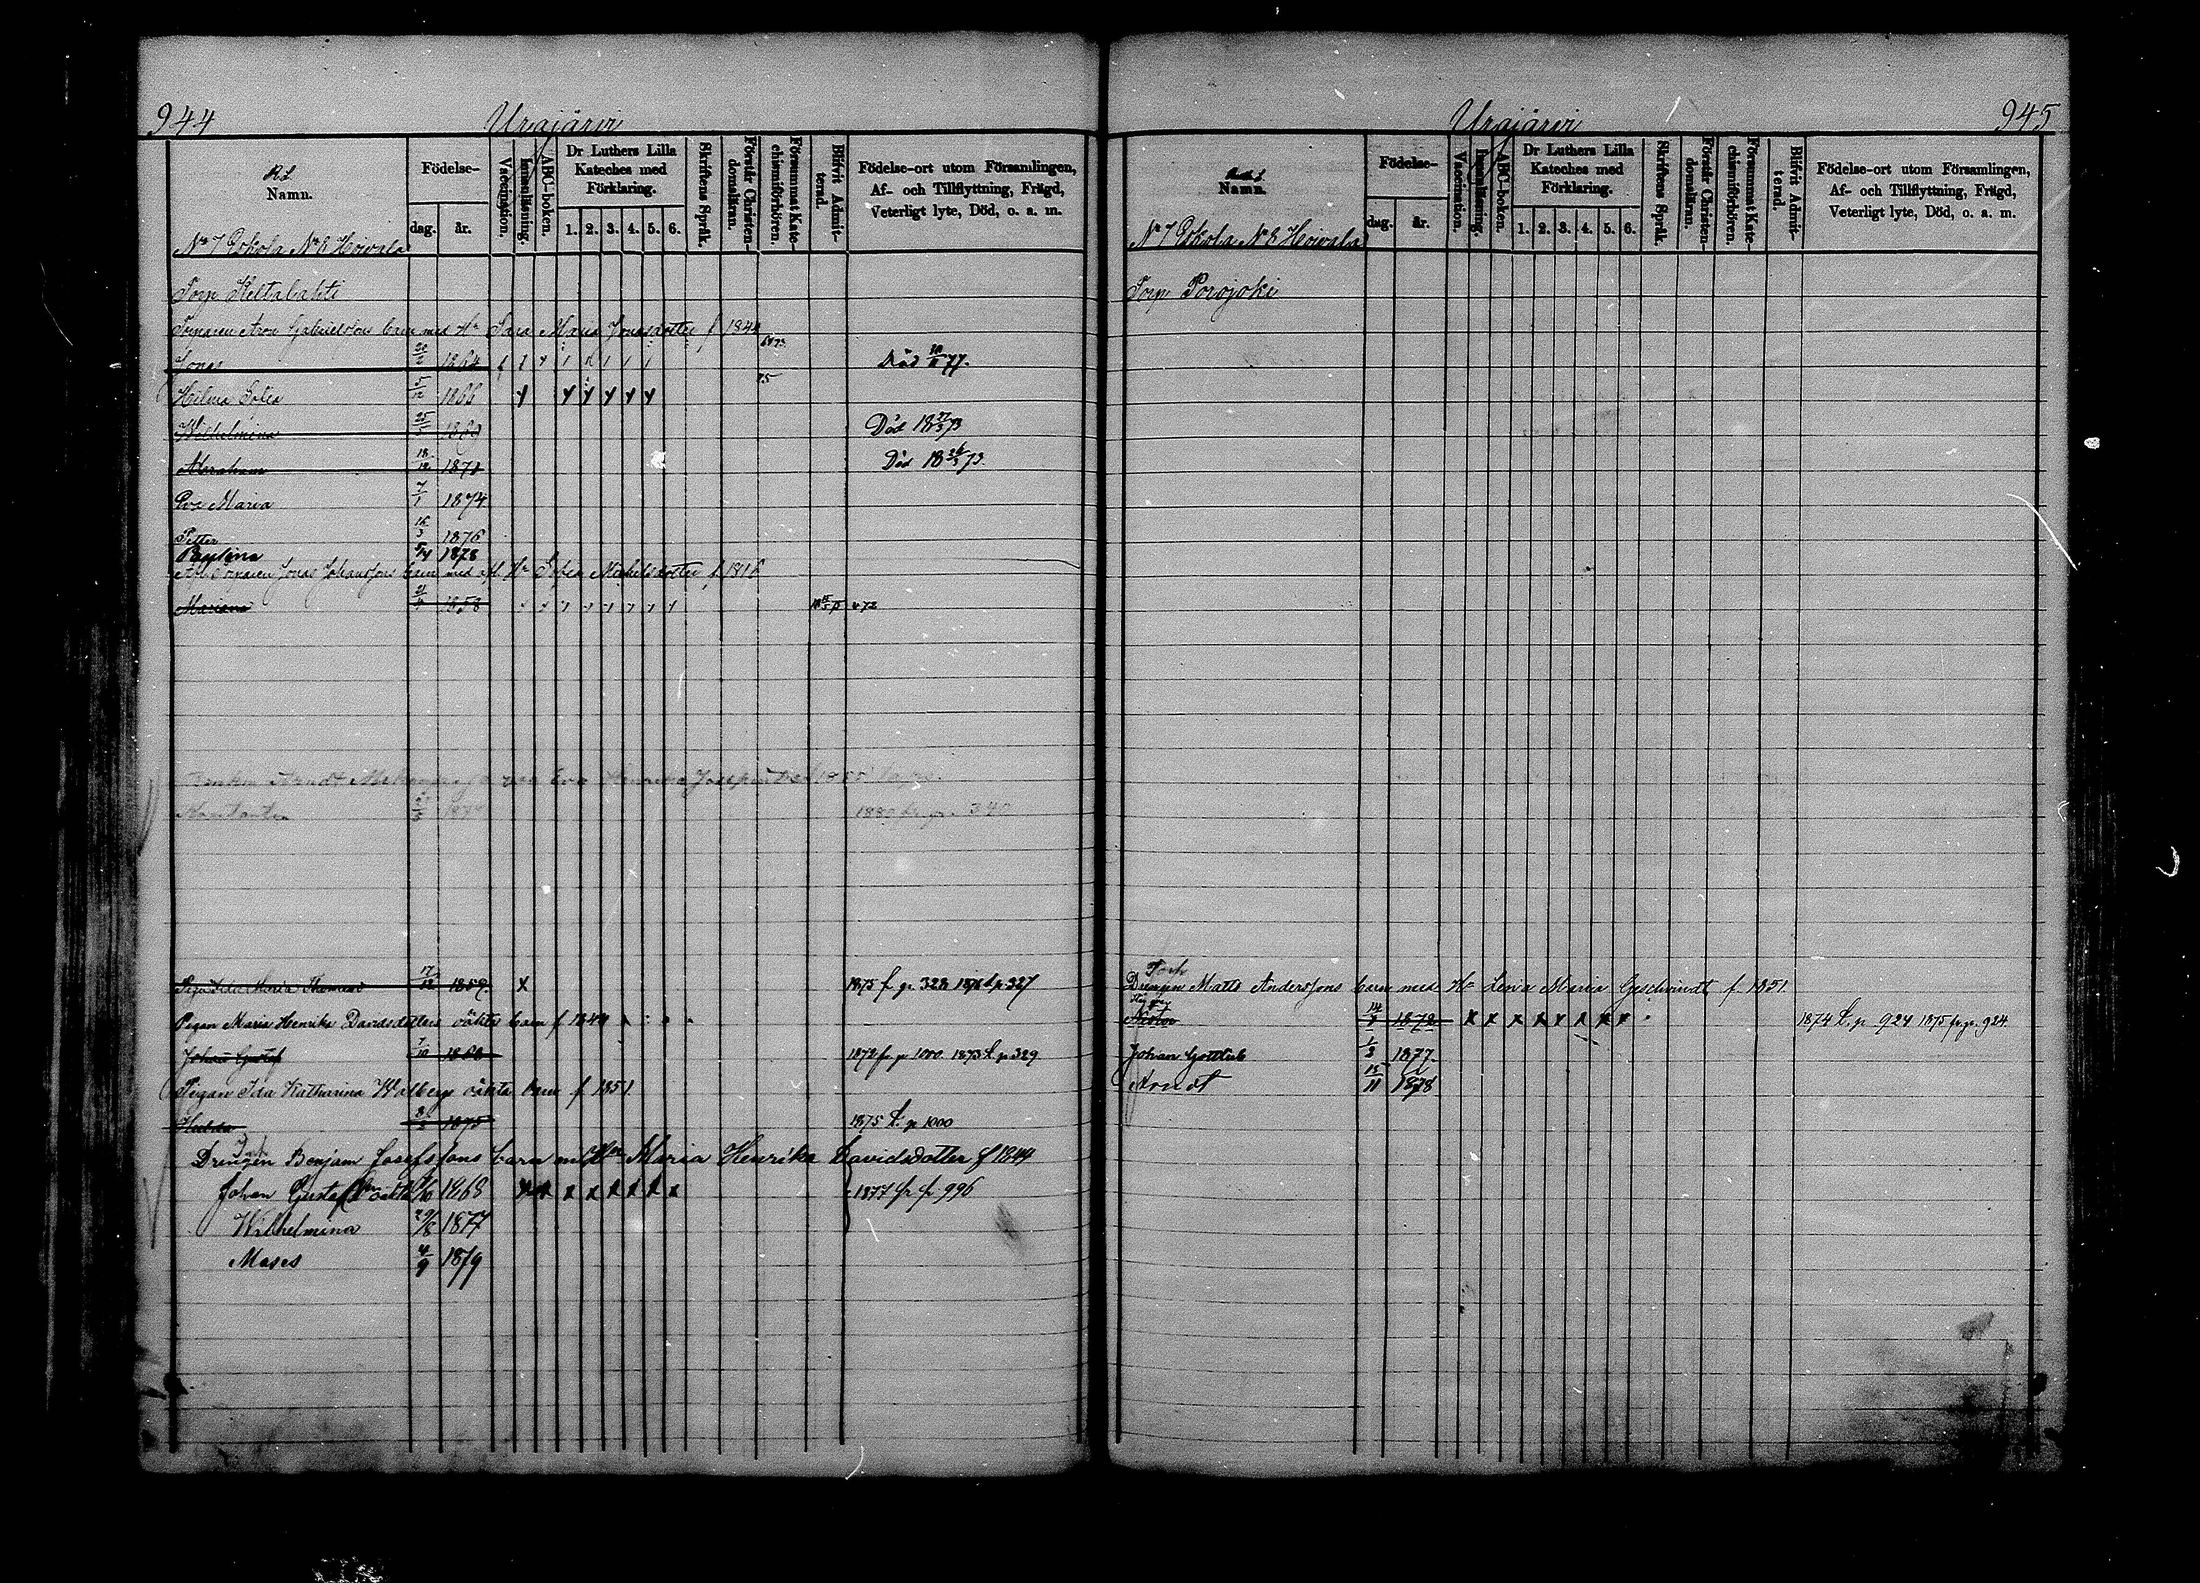 944 Urajärvi
Namn. Födelse- dag. år. Vaccination. Innanläsning. ABC-boken. Dr Luthers Lilla Kateches med Förklaring. 1. 2. 3. 4. 5. 6. Skriftens Språk. Förstår Christendomsläran. Försummat Katechismiförhören. Blifvit Admitterad. Födelse-ort utom Församlingen, Af- och Tillflyttning, Frägd, Veterligt lyte, Död, o. a. m.
No 7 Eskola No 8 Hoivala
Torp Keltalahti
Torparen Aron Gabrielssons barn med Hu Sara Maria Jonasdotter f 1840
Jonas 1864 Död 77.
Hilma Sofia 5/12 1866 75
Wilhelmina 25 Död 18 73
Abraham 18/12 1871 Död 18 73.
Eva Maria 7/1 1874
Petter 16/3 1876
Paulina 5/4 1878
Afl. Torparen Jonas Johanssons barn med afl. Hu Sofia Michelsdotter f. 1816
Mariana 1858
1880 fr. p. 340
Pigan Ida Maria 17/12 1859 x 1875 f. p. 328 1876 t. p. 327
Pigan Maria Henrika Davidsdotters oäkta barn f 1844
Johan Gustaf 7/10 1868 1872 fr. p 1000 1873 t. p 329
Pigan Ida Katharina Walbergs oäkta barn f 1851
Hulda 1875 1875 t. p 1000
Drengen Benjam Josefssons barn m Hu Maria Henrika Davidsdotter f 1844
Johan Gustaf oäkta 7/10 1868 x x x x x x x x 1877 fr p 996
Wilhelmina 29/8 1877
Moses 4/9 1879
945 Urajärvi
Namn. Födelse- dag. år. Vaccination. Innanläsning. ABC-boken. Dr Luthers Lilla Kateches med Förklaring. 1. 2. 3. 4. 5. 6. Skriftens Språk. Förstår Christendomsläran. Försummat Katechismiförhören. Blifvit Admitterad. Födelse-ort utom Församlingen, Af- och Tillflyttning, Frägd, Veterligt lyte, Död, o. a. m.
No 7 Eskola No 8 Hoivala
Torp Porojoki
Torp
Drengen Matts Anderssons barn med Hu Lena Maria Geschwindt f. 1851
Nestor 1872 x x x x x x x x 1874 t. p 924 1875 fr. p. 924
Johan Gottlieb 1/2 1877
Arndt 15/11 1878